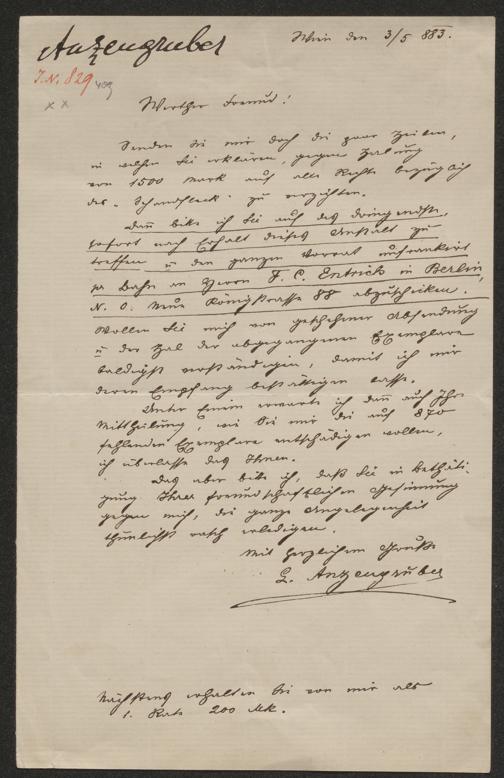 Anzengruber
J.N. 829
Wien den 3/5 883.
Werther Freund!
Senden Sie mir doch die paar Zeilen,
in welchen Sie erklären, gegen Zalung
von 1500 Mark auf alle Rechte bezüglich
des „Schandfleck“ zu verzichten.
Dann bitte ich Sie auf das dringendste,
sofort nach Erhalt dieses Anstalt zu
treffen u den ganzen Vorrat unfrankirt
per Bahn an Herrn F. C. Entrich in Berlin,
N. O. Neue Königstrasse 88 abzuschicken.
Wollen Sie mich von geschehener Absendung
u der Zal der abgegangenen Exemplare
baldigst verständigen, damit ich mir
deren Empfang bestättigen lasse.
Unter Einem erwarte ich dann auch Ihre
Mittheilung, wie Sie mir die auf 870
fehlenden Exemplare entschädigen wollen,
ich überlasse das Ihnen.
Das aber bitte ich, daß Sie in Bethäti-
gung Ihrer freundschaftlichen Gesinnung
gegen mich, die ganze Angelegenheit
thunlichst rasch erledigen.
Mit herzlichem Gruße
L. Anzengruber
Nächstens erhalten Sie von mir als
1. Rate 200 Mk.